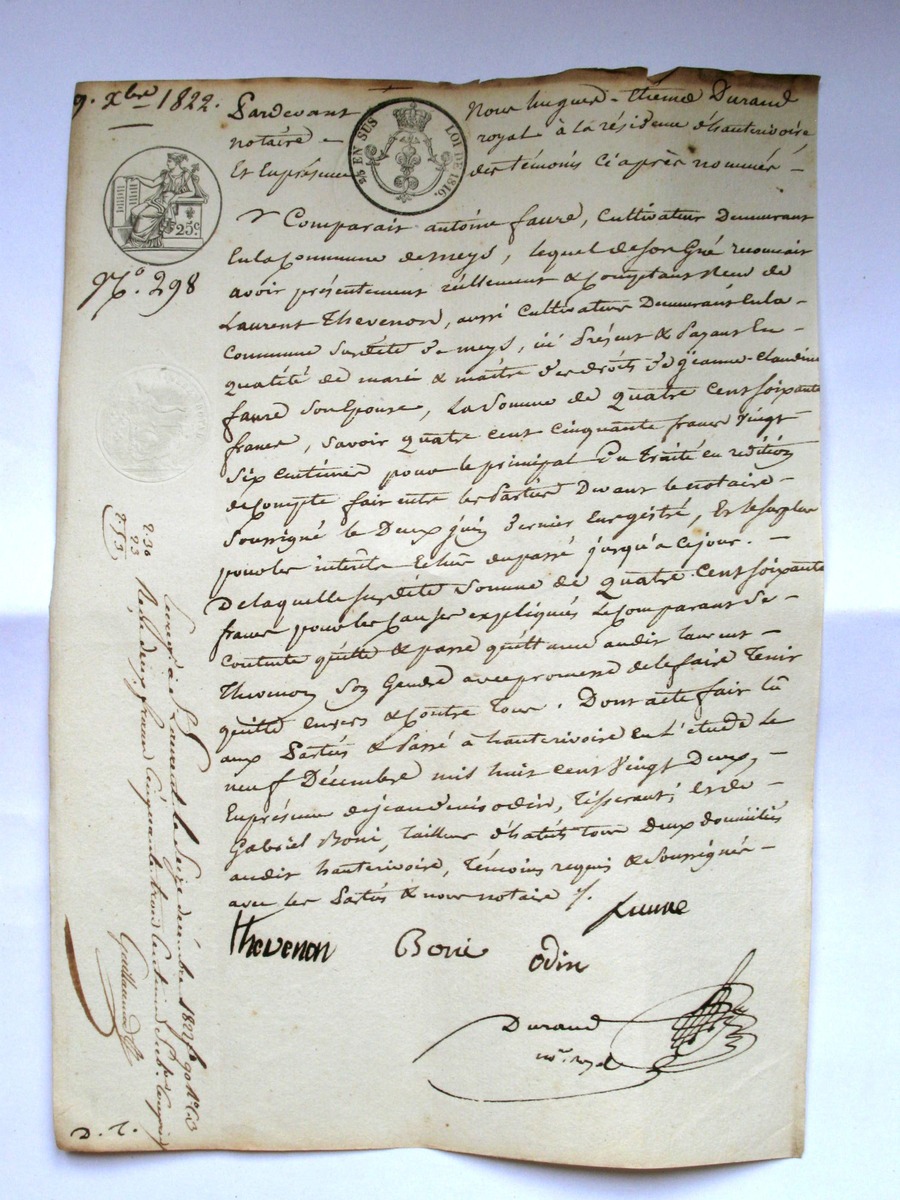 9. Xbre 1822.
Pardevant Nous hugues-théme Durand
notaire royal à la résidence d'hauterivoire
Et En présence des témoins Ci après nommés
% EN SUS LOI DE 1816.
25c
N.o 298
Comparait antoine faure, Cultivateur Demeurant
En la Commune de meys, lequel de son Gré reconnait
avoir présentement réellement & Comptant Reçu de
Laurent Thevenon, aussi Cultivateur Demeurant En la
Commune Susdite de meys, ici Présent & Payant En
qualité de mari & maître des droits de jeanne-Claudine
faure Son Epouse, La Somme de quatre Cent Soixante
francs, Savoir quatre cent Cinquante francs Vingt
Six Centimes pour le principal du Traité en rédition
de Compte fait entre les Parties Devant le notaire
Soussigné le Deux juin Dernier Enregistré, Et le Surplus
pour les intérêts Echus du passé jusqu'à Cejour.
De laquelle Susdite Somme de quatre Cent Soixante
francs pour les Causes expliquées Le Comparant Se
Contente quitte & passe quittance audit Laurent
Thevenon Son Gendre avec promesse de le faire Tenir
quitte Envers & Contre Tous. Dont acte fait Lû
aux Parties & Passé à hauterivoire En L'étude Le
neuf Décembre mil huit cent Vingt Deux,
En présence de jean denis odin, Tisserant, et de
Gabriel Boni, Tailleur d'habits Tous Deux domiciliés
audit hauterivoire, Témoins requis & Soussignés
avec les Parties & nous notaire
faure
Thevenon Boni odin
Durand
nore royal
2.30
23
2.53
Enregé à St Laurent le Seize décembre 1822 fo 90
Reçu deux francs Cinquante trois Centimes Subon Compris
Guillaume
D. T.